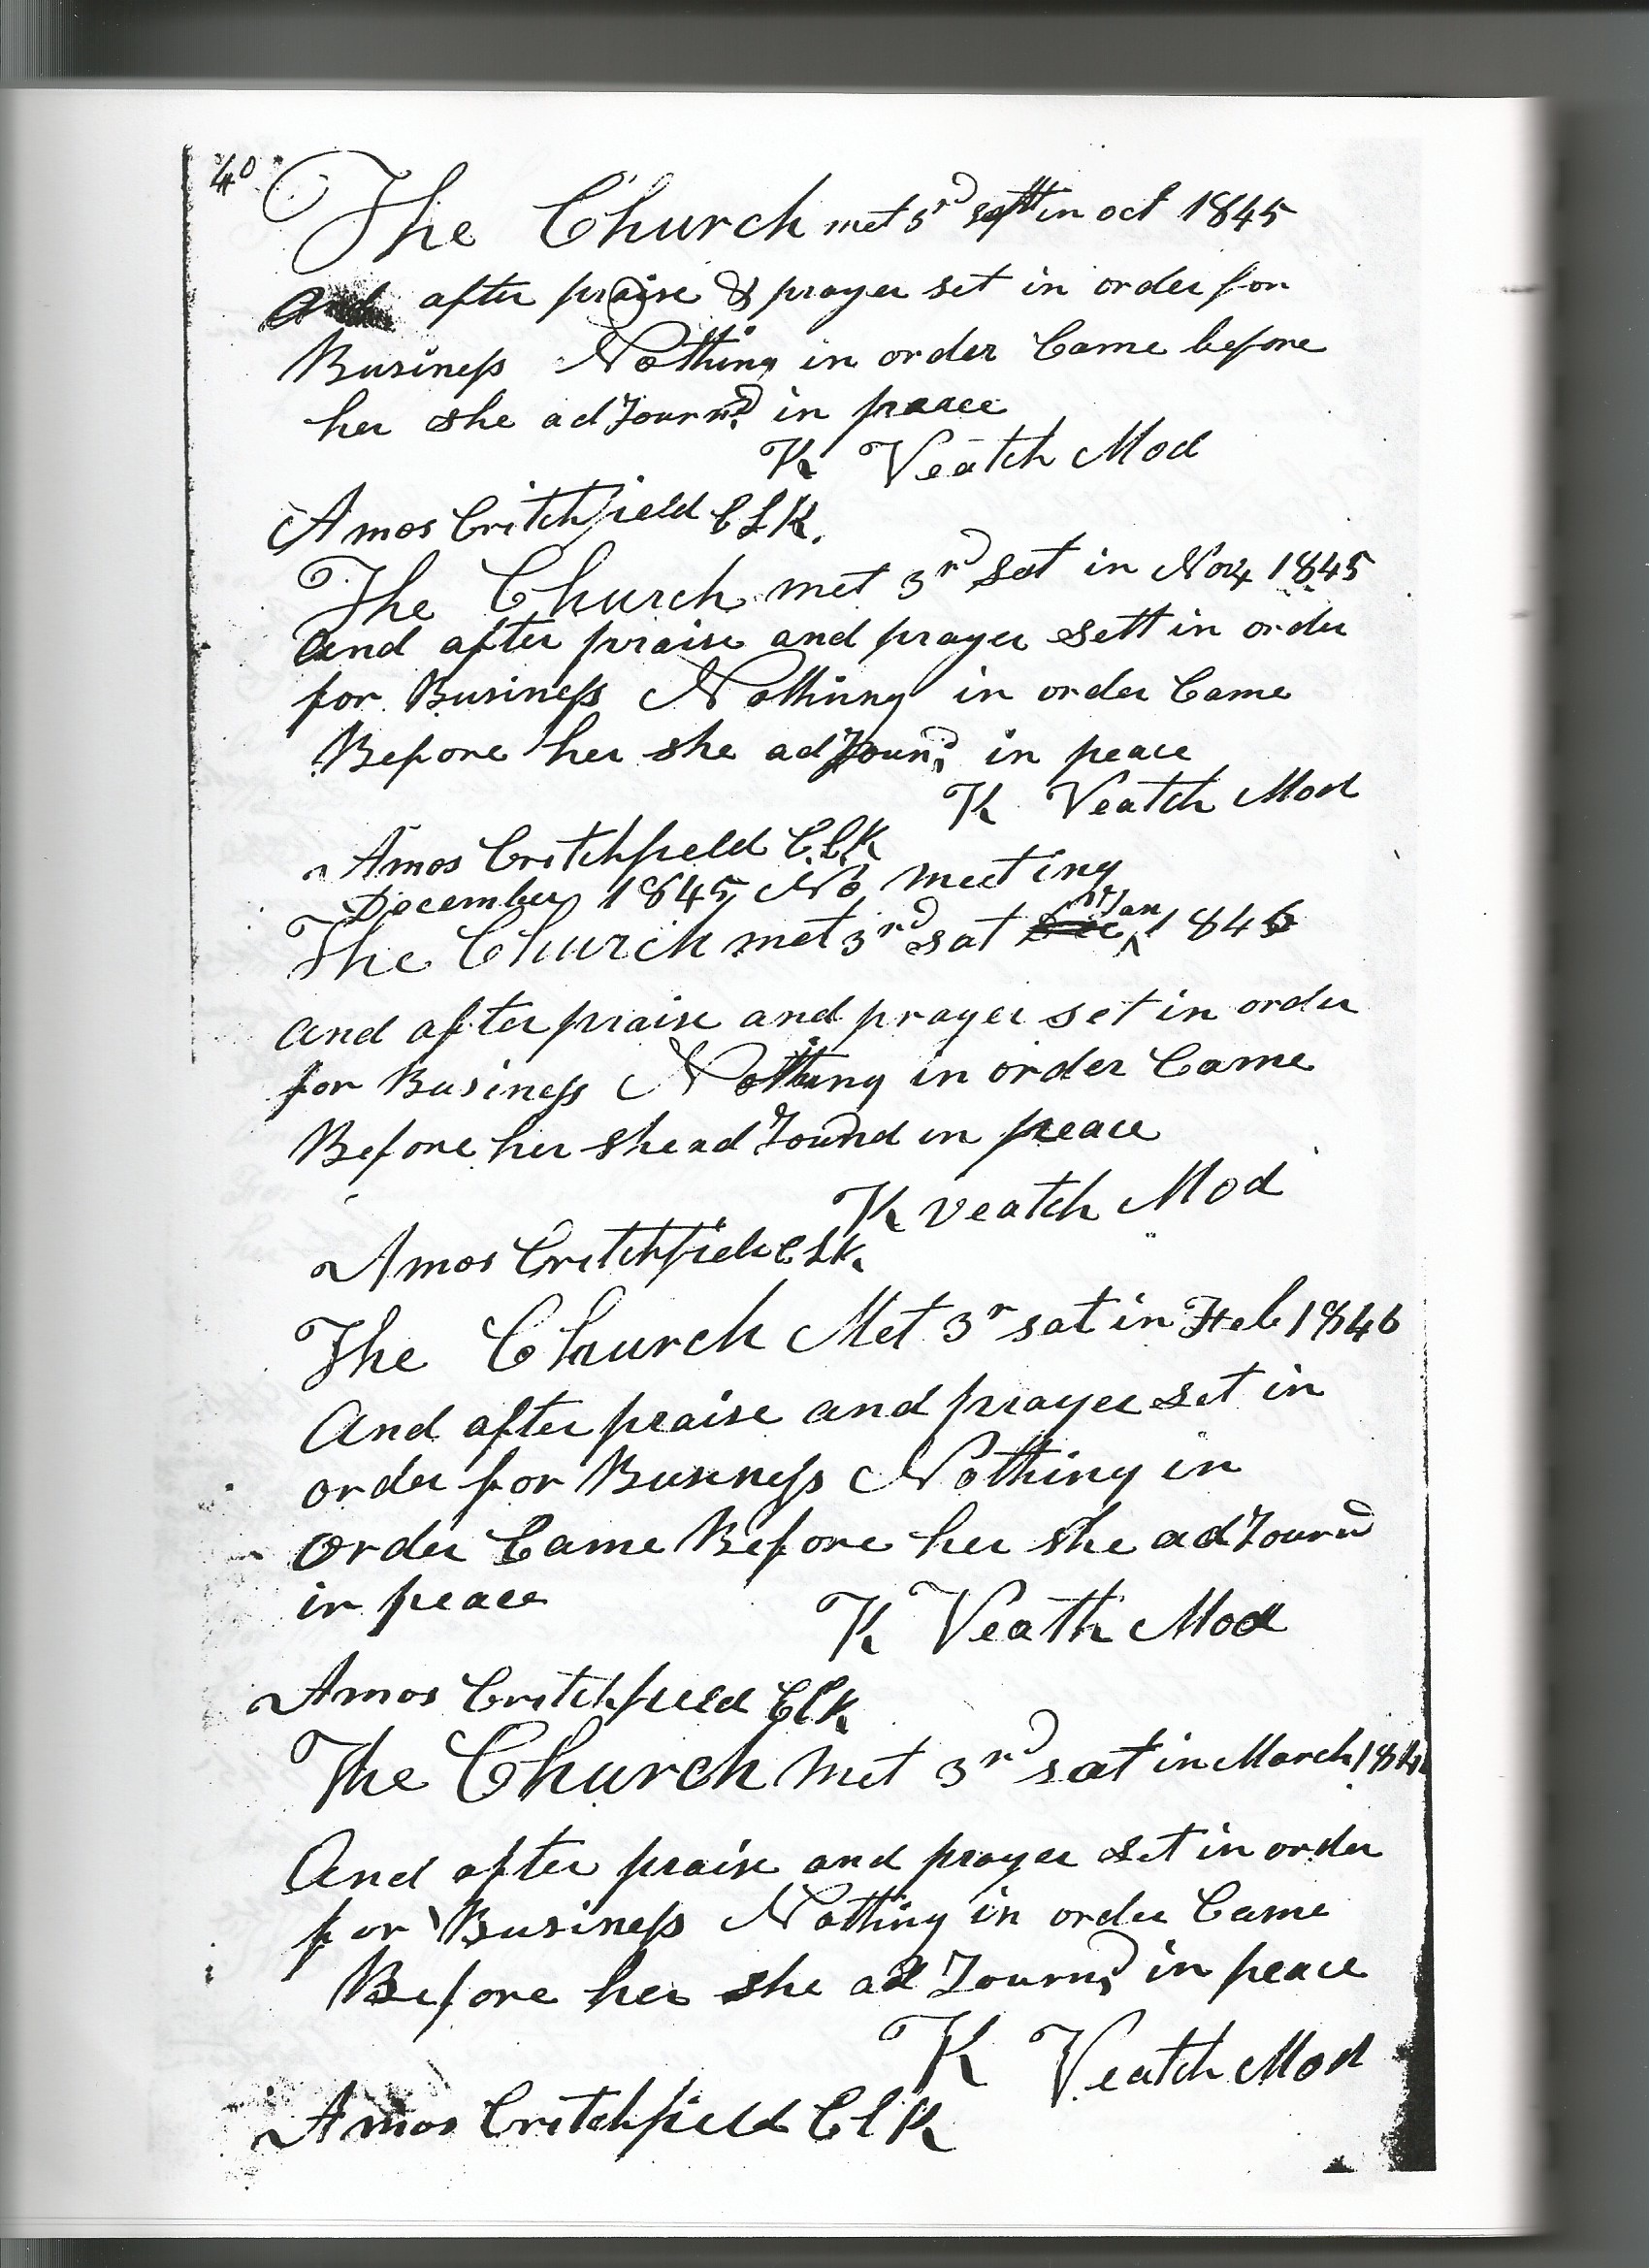 40
The Church met 3rd satt in oct 1845
And after praise & prayer set in order for
Business Nothing in order Came before
her she adJournd in peace
K Veatch Mod
Amos Critchfield CLK.
The Church met 3rd Sat in Nov 1845
And after praise and prayer sett in order
for Business Nothing in order Came
Before her she adJound in peace
K Veatch Mod
Amos Critchfield CLK
December 1845 No meeting
The Church met 3rd sat Dec in Jan 1846
And after praise and prayer set in order
for Business Nothing in order Came
Before her she adJound in peace
K veatch Mod
Amos Critchfield CLK.
The Church Met 3r sat in Feb 1846
And after praise and prayer set in
order for Business Nothing in
order Came Before her she adJournd
in peace
K Veath Mod
Amos Critchfield ClK
The Church Met 3rd sat in March 184
And after praise and prayer set in order
for Business Nothing in order Came
Before her she adJournd in peace
K Veatch Mod
Amos Critchfield ClK